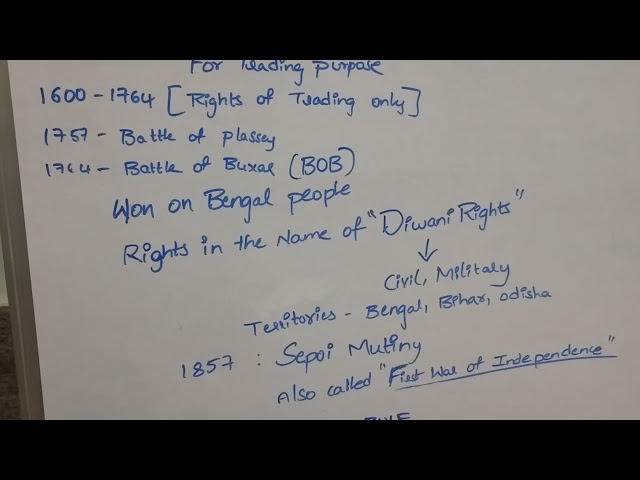 For Trading purpose
1600 - 1764 [Rights of Trading only]
1757 - Battle of plassey
1764 - Battle of Buxar (BOB)
Won on Bengal people
Rights in the Name of "Diwani Rights"
Civil, Military
Territories - Bengal, Bihar, odisha
1857 : Sepoi Mutiny
Also called "First War of Independence"